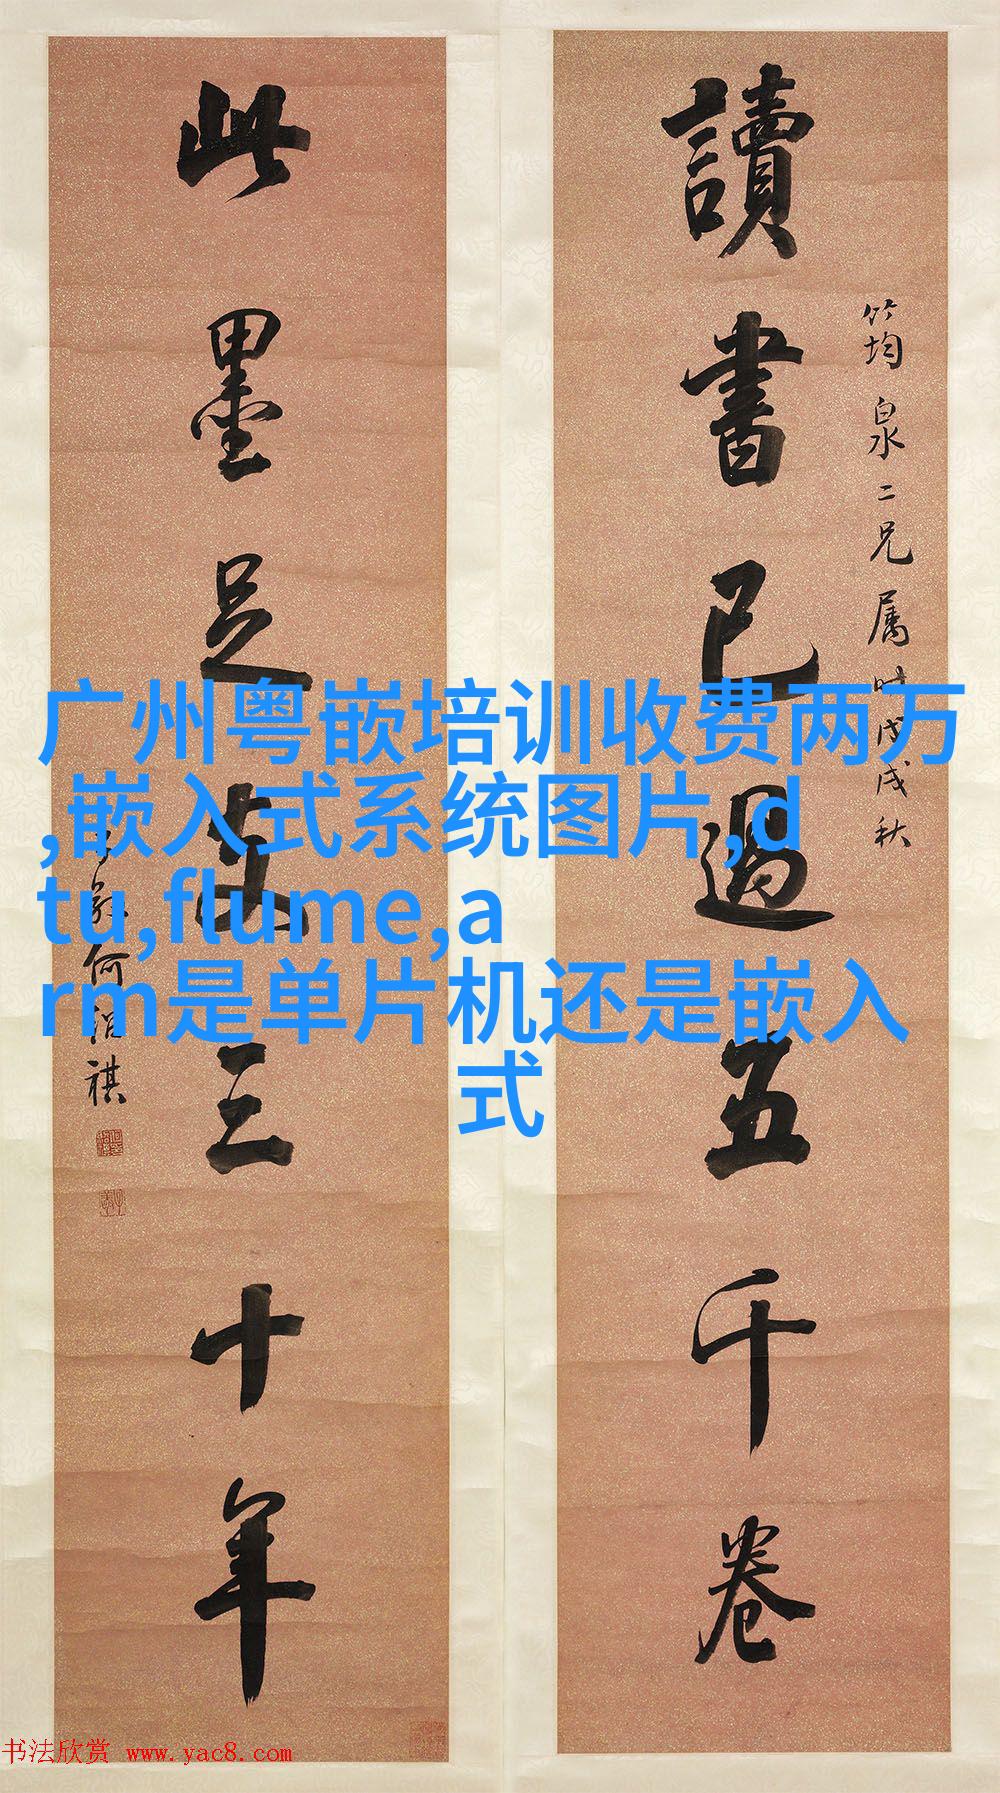 讀書已過五千卷
筠泉二兄属时戊戌秋
此墨足支三十年
子敬何紹祺
广州粤嵌培训收费两万
,嵌入式系统图片,d
tu,flume,a
rm是单片机还是嵌入
式
书法欣赏 www.yac8.com